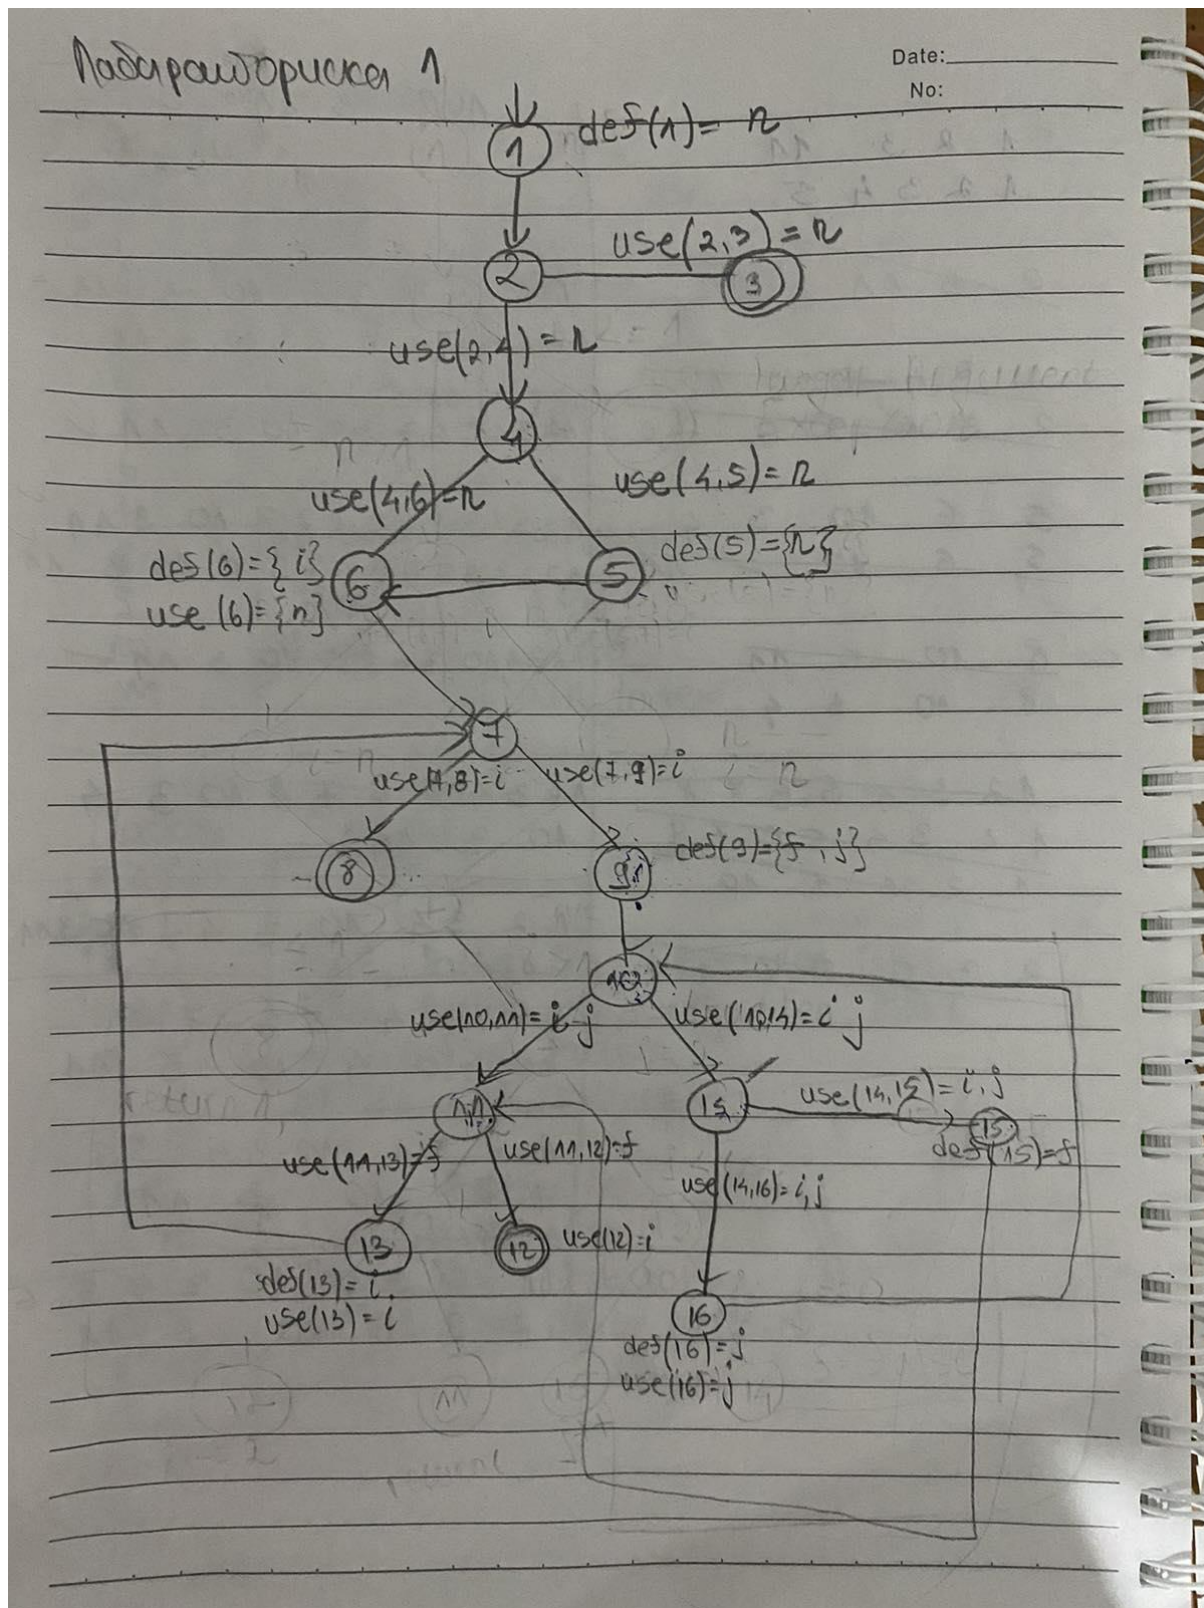 Лабараториска 1
Date:
No:
1
def(1) = n
use(2,3) = n
2
3
use(2,4) = n
4
use(4,6)=n
use(4,5)= n
def(6)={i}
use (6)={n}
6
5
def(5)={n}
7
use(7,8)=i
use(7,9)=i
8
9
def(9)={f, j}
10
use(10,11)= i j
use(10,14)= i j
11
14
use(14,15)= i, j
15
def(15)=f
use(11,13)=f
use(11,12)=f
use(14,16)=i,j
13
12
use(12)=i
def(13)= i
use(13)= i
16
def(16)=j
use(16)=j